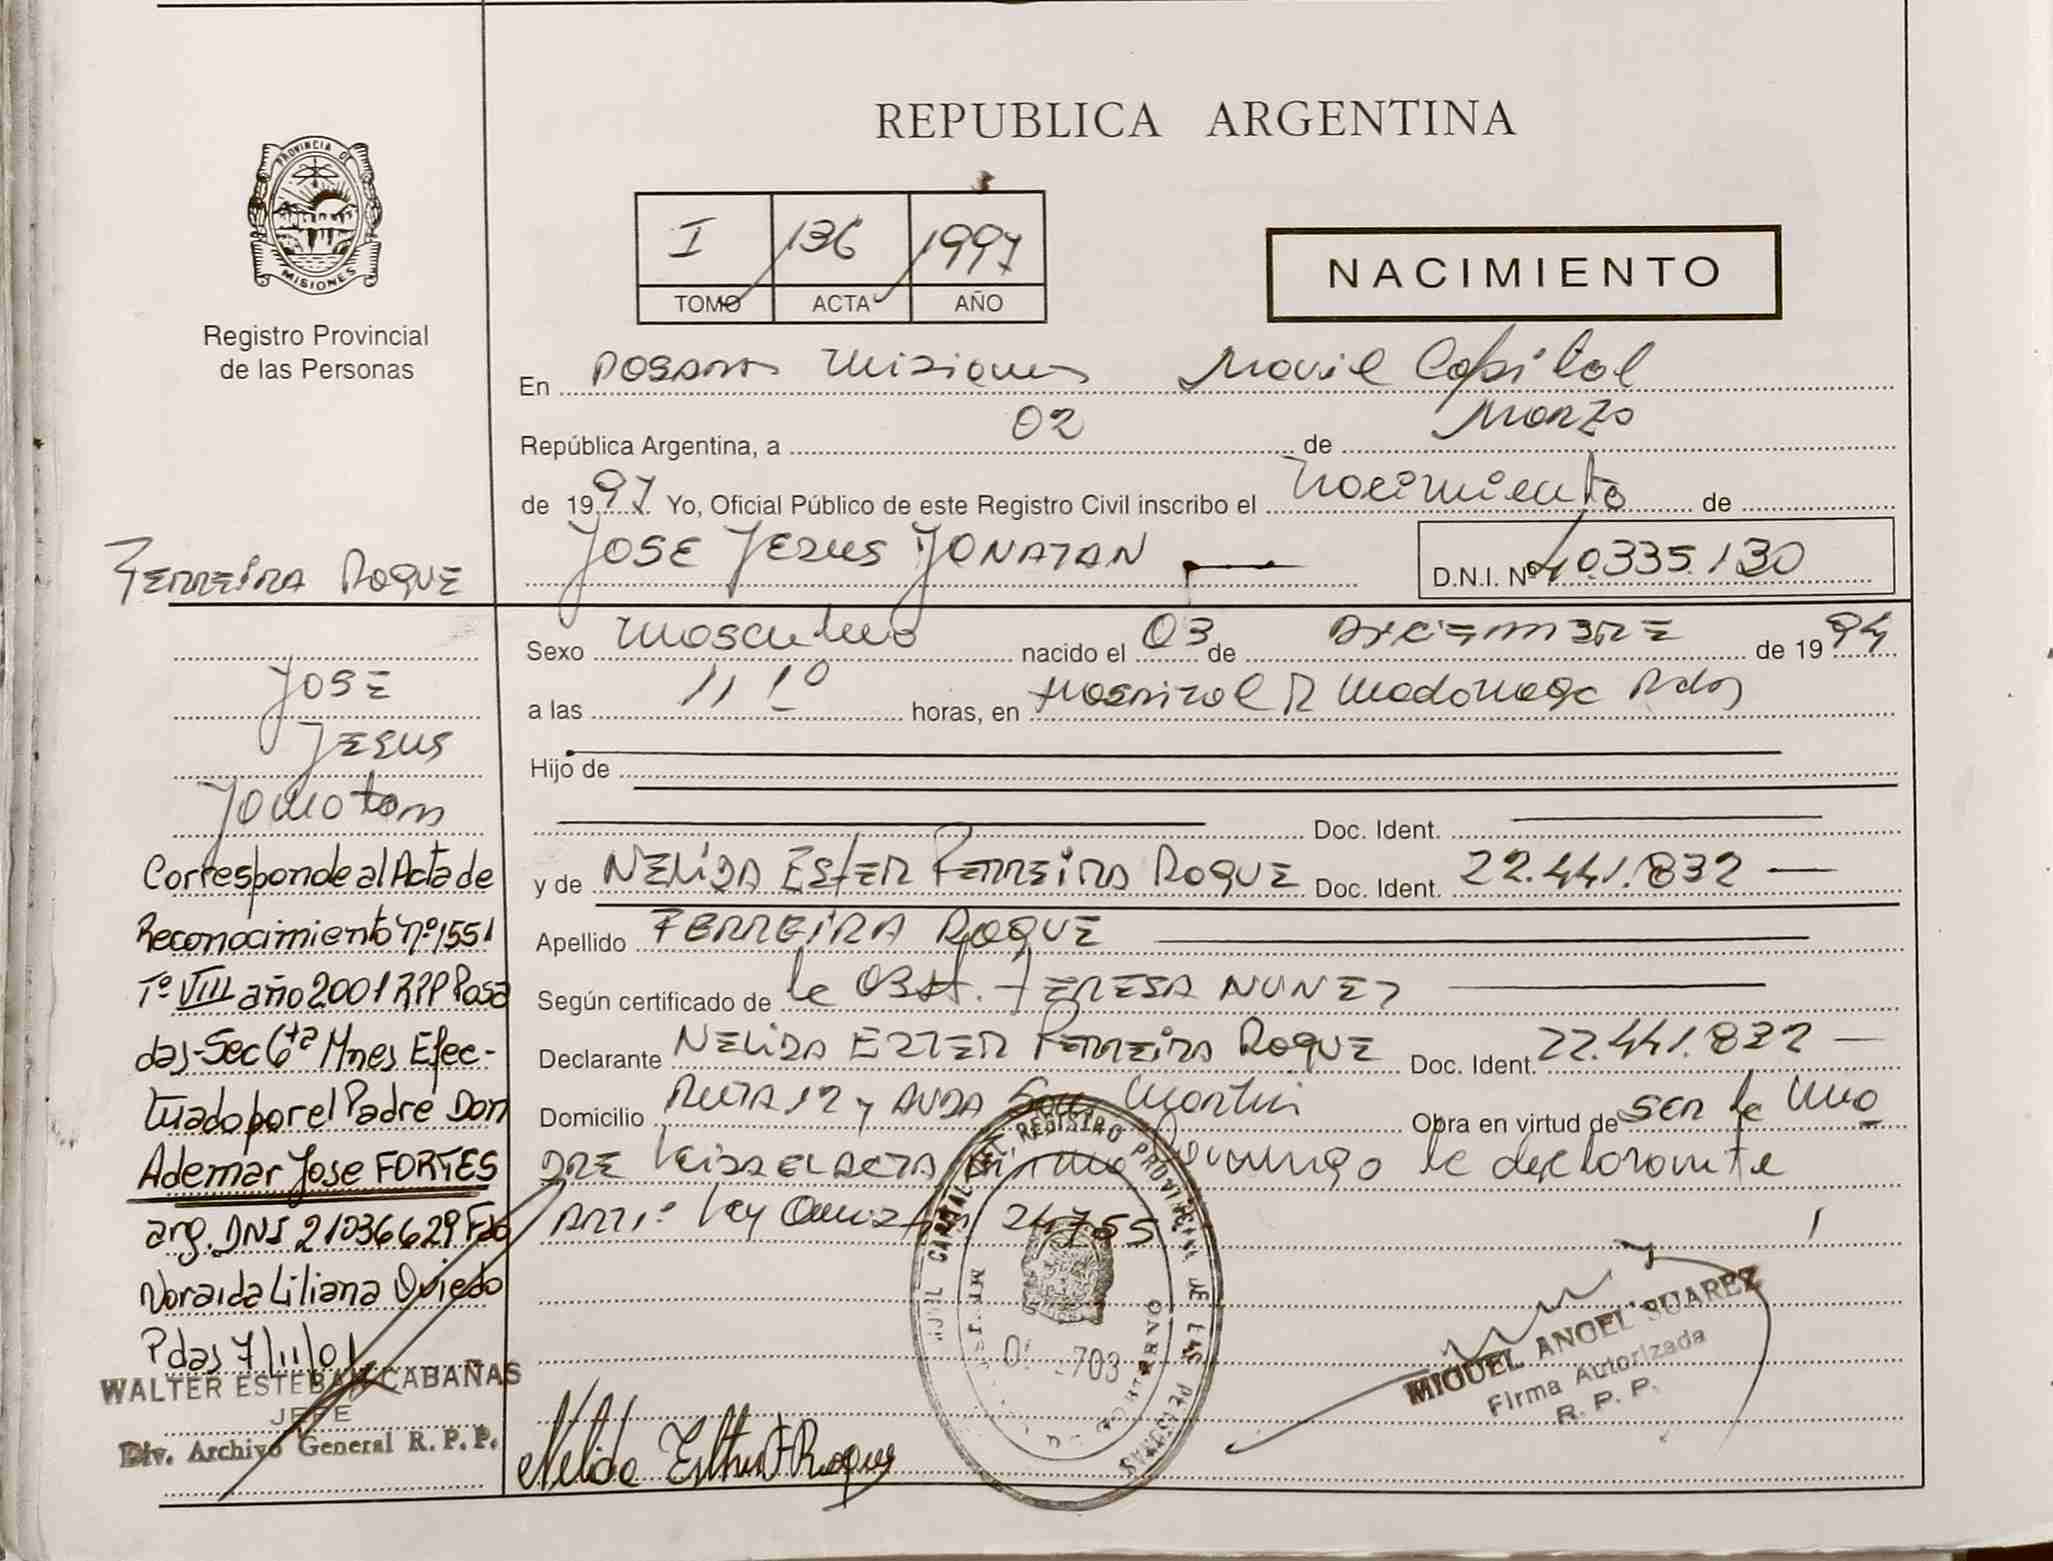 REPUBLICA ARGENTINA
PROVINCIA DE
MISIONES
Registro Provincial
de las Personas
I 136 1997
TOMO ACTA AÑO
NACIMIENTO
En Posadas Misiones Movil Capital
República Argentina, a 02 de Marzo
de 1997 Yo, Oficial Público de este Registro Civil inscribo el Nacimiento de
JOSE JESUS JONATAN D.N.I. Nº 40.335.130
FERREIRA ROQUE
JOSE
JESUS
Jonatan
Corresponde al Acta de
Reconocimiento nº 1551
Tº VIII año 2001 RPP Posa
das-Sec 6ta Mnes Efec-
tuado por el Padre Don
Ademar Jose FORTES
arg. DNI 21036629 Fdo
Noraida Liliana Oviedo
Pdas 7/11/01
WALTER ESTEBAN CABAÑAS
JEFE
Div. Archivo General R. P. P.
Sexo masculino nacido el 03 de DICIEMBRE de 1994
a las 11 10 horas, en Hospital R Madariaga Pdas
Hijo de
Doc. Ident.
y de NELIDA ESTER FERREIRA ROQUE Doc. Ident. 22.441.832
Apellido FERREIRA ROQUE
Según certificado de la Obst. TERESA NUNEZ
Declarante NELIDA ESTER FERREIRA ROQUE Doc. Ident. 22.441.832
Domicilio RUTA 12 y AVDA San Martin Obra en virtud de ser la ma
DRE Leida el ACTA la declarante
Ley 24755
REGISTRO PROVINCIAL DE LAS PERSONAS
703
Nelida Esther F Roque
MIGUEL ANGEL SUAREZ
Firma Autorizada
R. P. P.